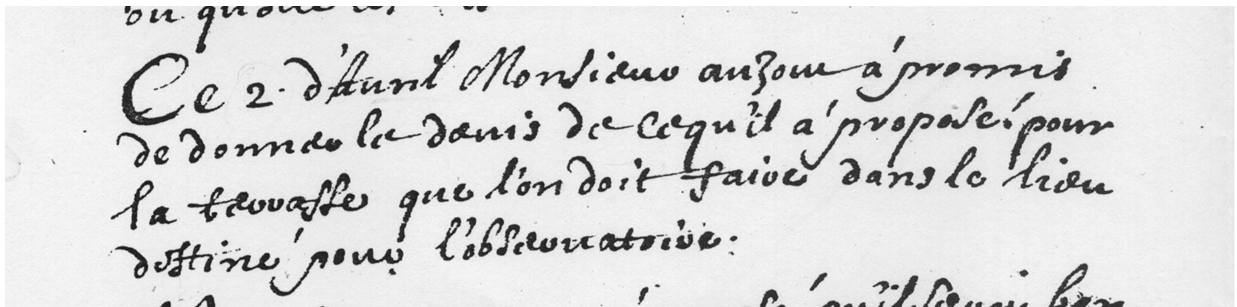 ou qu'elle
Ce 2. d'Auril Monsieur auzout á promis
de donner le deuis de ce qu'il á proposé pour
la terrasse que l'on doit faire dans le lieu
destiné pour l'obseruatoire.
qu'il seroit bon